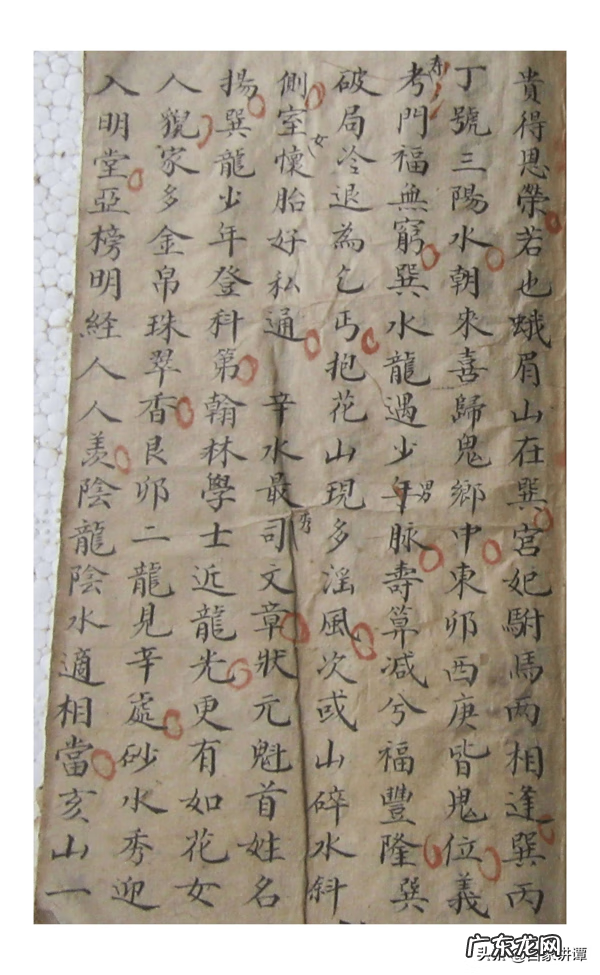 貴得恩榮若也蛾眉山在巽宮妃駙馬两相逢巽丙
丁號三陽水朝來喜歸鬼鄉中東卯西庚皆鬼位義
考門福無窮巽水龍遇少年脉壽算减兮福豐隆巽
寿
男
破局冷退為乞丐抱花山現多滛風次或山碎水斜
側室懷胎好私通 辛水最司文章狀元魁首姓名
女
秀
揚巽龍少年登科第翰林學士近龍光更有如花女
人貌家多金帛珠翠香艮卯二龍見辛處砂水秀迎
入明堂亞榜明経人人羨陰龍陰水適相當亥山一
广东龙网